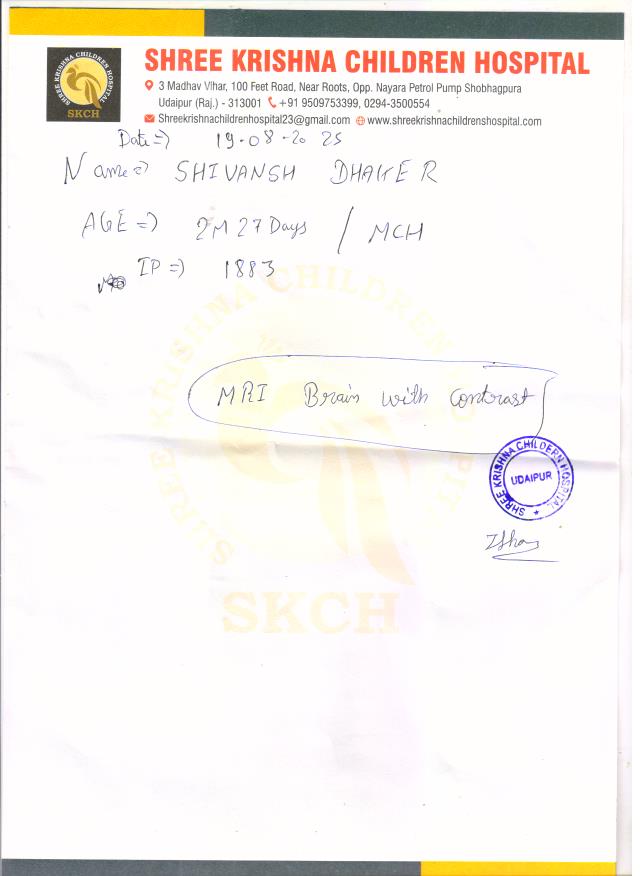 SHREE KRISHNA CHILDREN HOSPITAL
SHREE KRISHNA CHILDREN HOSPITAL
SKCH
3 Madhav Vihar, 100 Feet Road, Near Roots, Opp. Nayara Petrol Pump Shobhagpura
Udaipur (Raj.) - 313001 +91 9509753399, 0294-3500554
Shreekrishnachildrenhospital23@gmail.com www.shreekrishnachildrenshospital.com
Date=> 19-08-2025
Name=> SHIVANSH DHAKER
AGE=> 2M 27 Days / MCH
IP=> 1883
MRI Brain with Contrast
SHREE KRISHNA CHILDERN HOSPITAL
UDAIPUR
SHREE KRISHNA CHILDREN HOSPITAL
SKCH